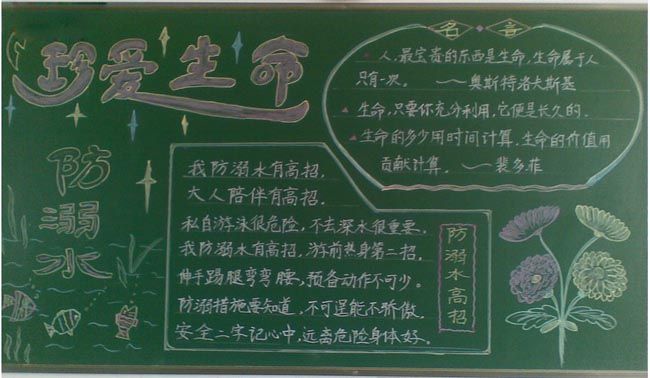 珍爱生命
防溺水
名言
人,最宝贵的东西是生命,生命属于人
只有一次。 ——奥斯特洛夫斯基
生命,只要你充分利用,它便是长久的.
生命的多少用时间计算,生命的价值用
贡献计算。 ——裴多菲
我防溺水有高招,
大人陪伴有高招.
私自游泳很危险,不去深水很重要。
我防溺水有高招,游前热身第二招,
伸手踢腿弯弯腰,预备动作不可少。
防溺措施要知道,不可逞能不骄傲。
安全二字记心中,远离危险身体好。
防溺水高招